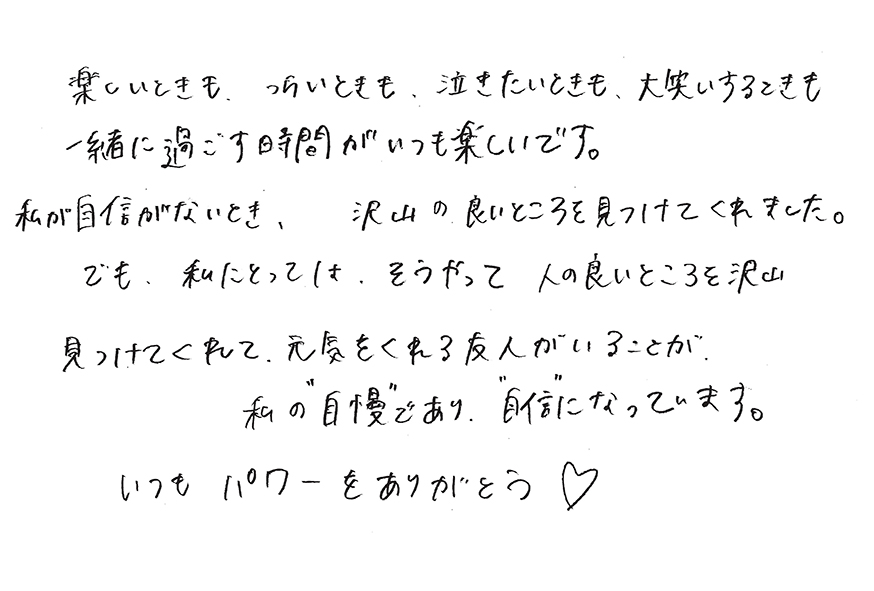 楽しいときも、つらいときも、泣きたいときも、大笑いするときも
一緒に過ごす時間がいつも楽しいです。
私が自信がないとき、 沢山の良いところを見つけてくれました。
でも、私にとっては、そうやって 人の良いところを沢山
見つけてくれて、元気をくれる友人がいることが、
私の"自慢"であり、"自信"になっています。
いつも パワーをありがとう ♡